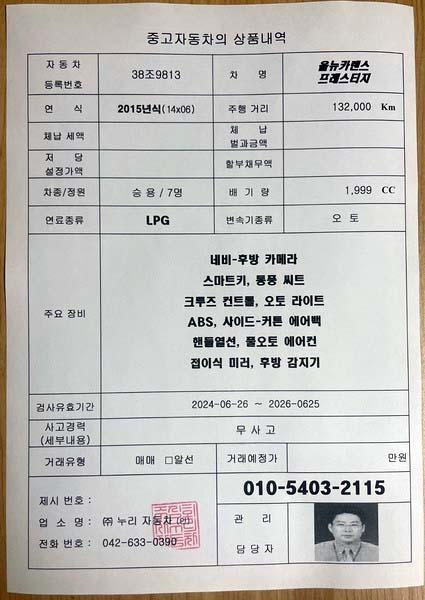 중고자동차의 상품내역
자 동 차
등록번호
38조9813
차 명
올뉴카렌스
프레스티지
연 식
2015년식(14x06)
주행 거리
132,000 Km
체납 세액
체 납
벌과금액
저 당
설정가액
할부채무액
차종/정원
승 용 / 7명
배 기 량
1,999 CC
연료종류
LPG
변속기종류
오 토
주요 장비
네비-후방 카메라
스마트키, 통풍 씨트
크루즈 컨트롤, 오토 라이트
ABS, 사이드-커튼 에어백
핸들열선, 풀오토 에어컨
접이식 미러, 후방 감지기
검사유효기간
2024-06-26 ~ 2026-0625
사고경력
(세부내용)
무 사 고
거래유형
매매 □알선
거래예정가
만원
제시 번호 :
업 소 명 : ㈜ 누리 자동차 (인)
전화 번호 : 042-633-0390
010-5403-2115
관 리
담 당 자